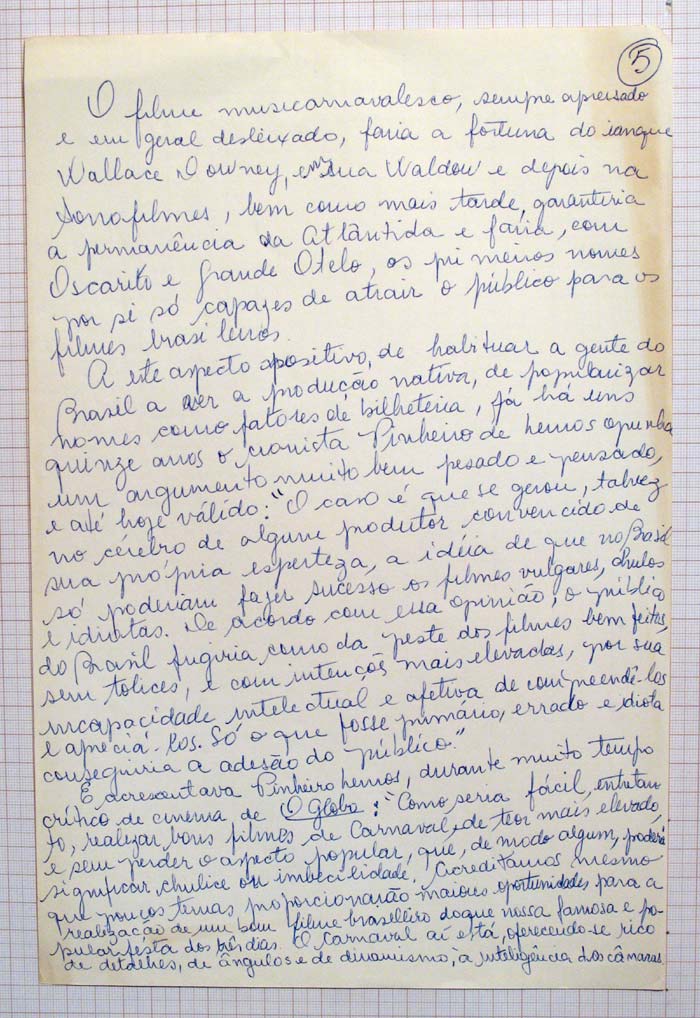 5
O filme musicarnavalesco, sempre apressado
e em geral desleixado, faria a fortuna do ianque
Wallace Downey, em sua Waldow e depois na
Sonofilmes, bem como mais tarde, garantiria
a permanência da Atlântida e faria, com
Oscarito e Grande Otelo, os primeiros nomes
por si só capazes de atrair o público para os
filmes brasileiros.
A este aspecto positivo, de habituar a gente do
Brasil a ver a produção nativa, de popularizar
nomes como fatores de bilheteria, já há uns
quinze anos o cronista Pinheiro de Lemos opunha
um argumento muito bem pesado e pensado,
e até hoje válido: "O caso é que se gerou, talvez
no cérebro de algum produtor convencido de
sua própria esperteza, a idéia de que no Brasil
só poderiam fazer sucesso os filmes vulgares, chulos
e idiotas. De acordo com essa opinião, o público
do Brasil fugiria como da peste dos filmes bem feitos,
sem tolices, e com intenções mais elevadas, por sua
incapacidade intelectual e afetiva de compreendê-los
e apreciá-los. Só o que fosse primário, errado e idiota
conseguiria a adesão do público."
E acrescentava Pinheiro Lemos, durante muito tempo
crítico de cinema de O Globo: "Como seria fácil, entretan
to, realizar bons filmes de Carnaval, de teor mais elevado,
e sem perder o aspecto popular, que, de modo algum, poderá
significar chulice ou imbecilidade. Acreditamos mesmo
que poucos temas proporcionarão maiores oportunidades para a
realização de um bom filme brasileiro do que nossa famosa e po-
pular festa dos três dias. O Carnaval aí está, oferecendo-se rico
de detalhes, de ângulos e de dinamismo, à inteligência das câmaras